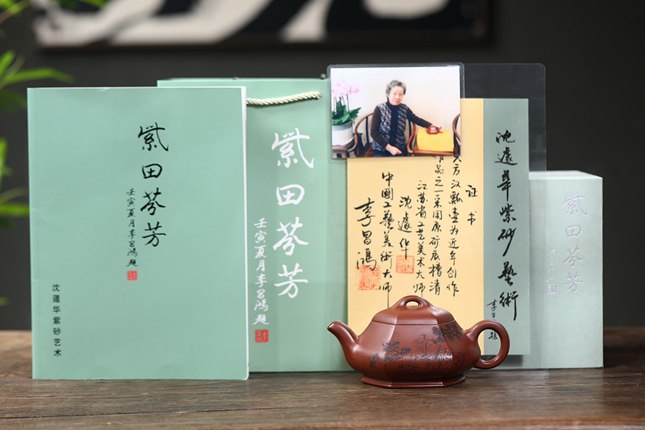 紫田芬芳
壬寅夏月李昌鴻題
沈蘧华紫砂艺术
紫田芬芳
壬寅夏月李昌鴻題
证书
方汉瓢壶为近年创作
作品之一采用原矿底槽清
江苏省工艺美术大师
沈蘧华
中國工艺美术大师
李昌鴻
沈蘧華紫砂藝術
紫田芬芳